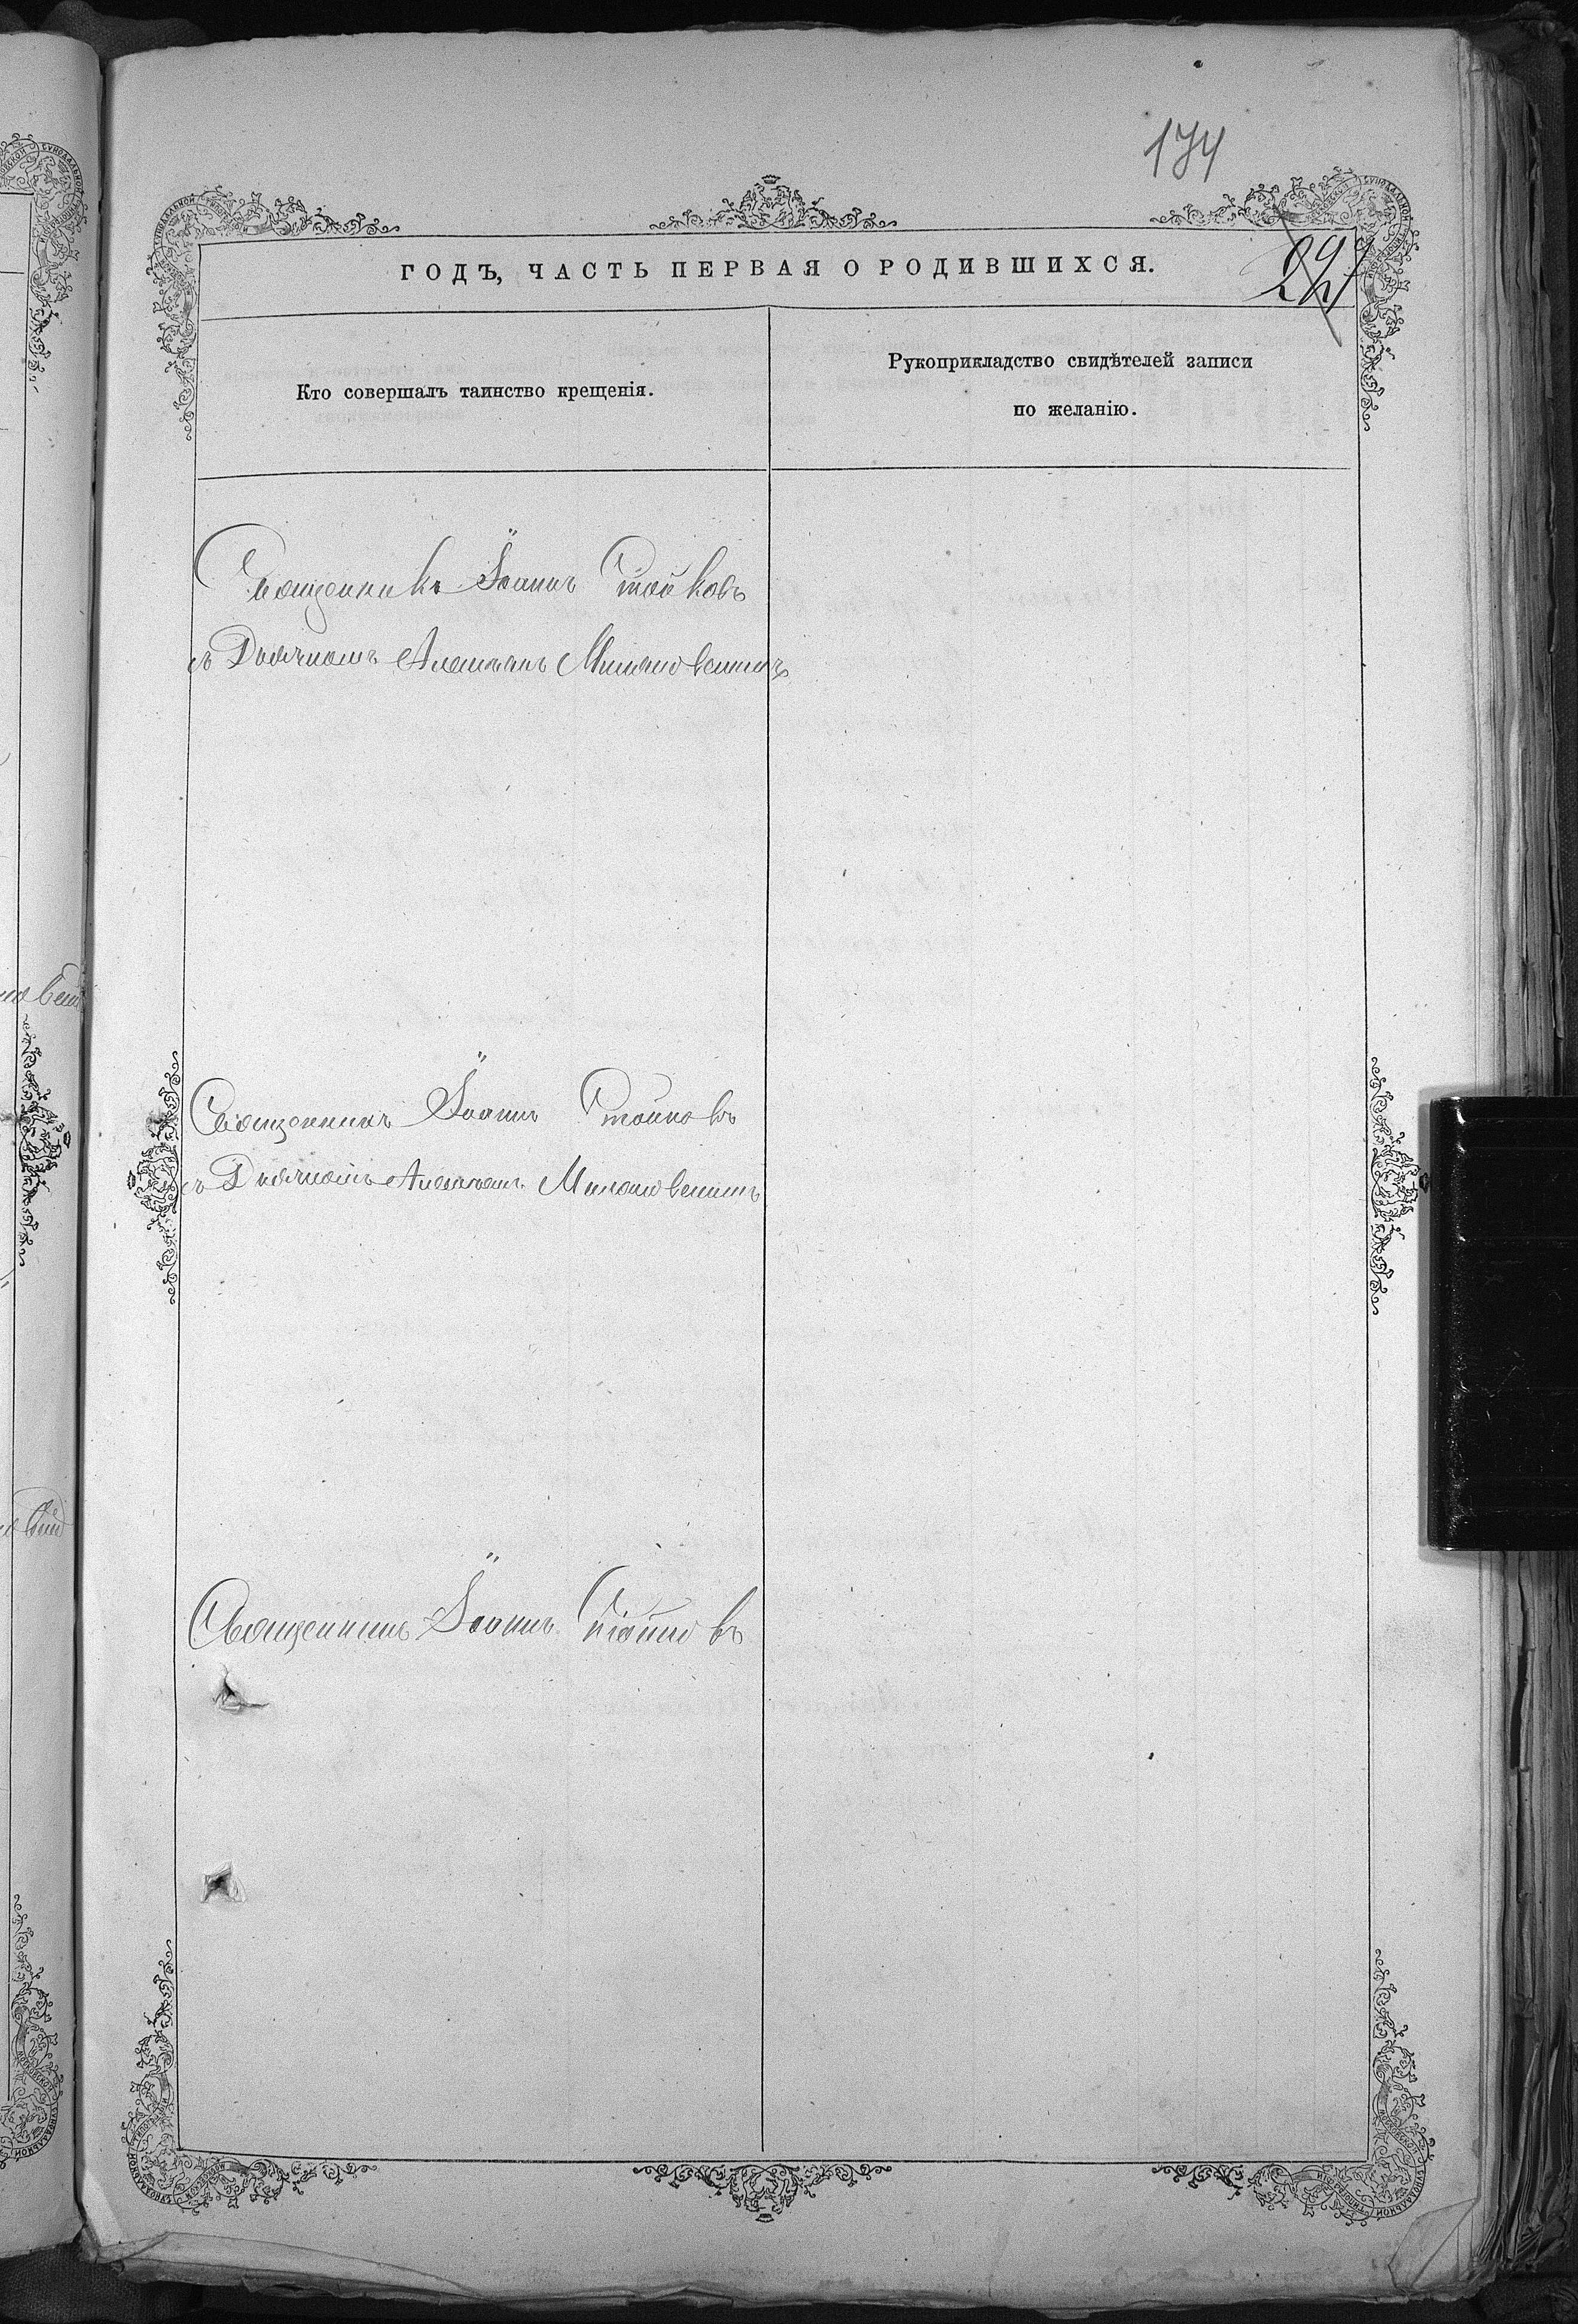 174
ГОДЪ, ЧАСТЬ ПЕРВАЯ О РОДИВШИХСЯ.
Кто совершалъ таинство крещенія.
Рукоприкладство свидѣтелей записи
по желанію.
Священникъ Іоаннъ Стойковъ
съ Дьячкомъ Милановскимъ
Священникъ Іоаннъ Стойковъ
съ Дьячкомъ Милановскимъ
Священникъ Іоаннъ Стойковъ